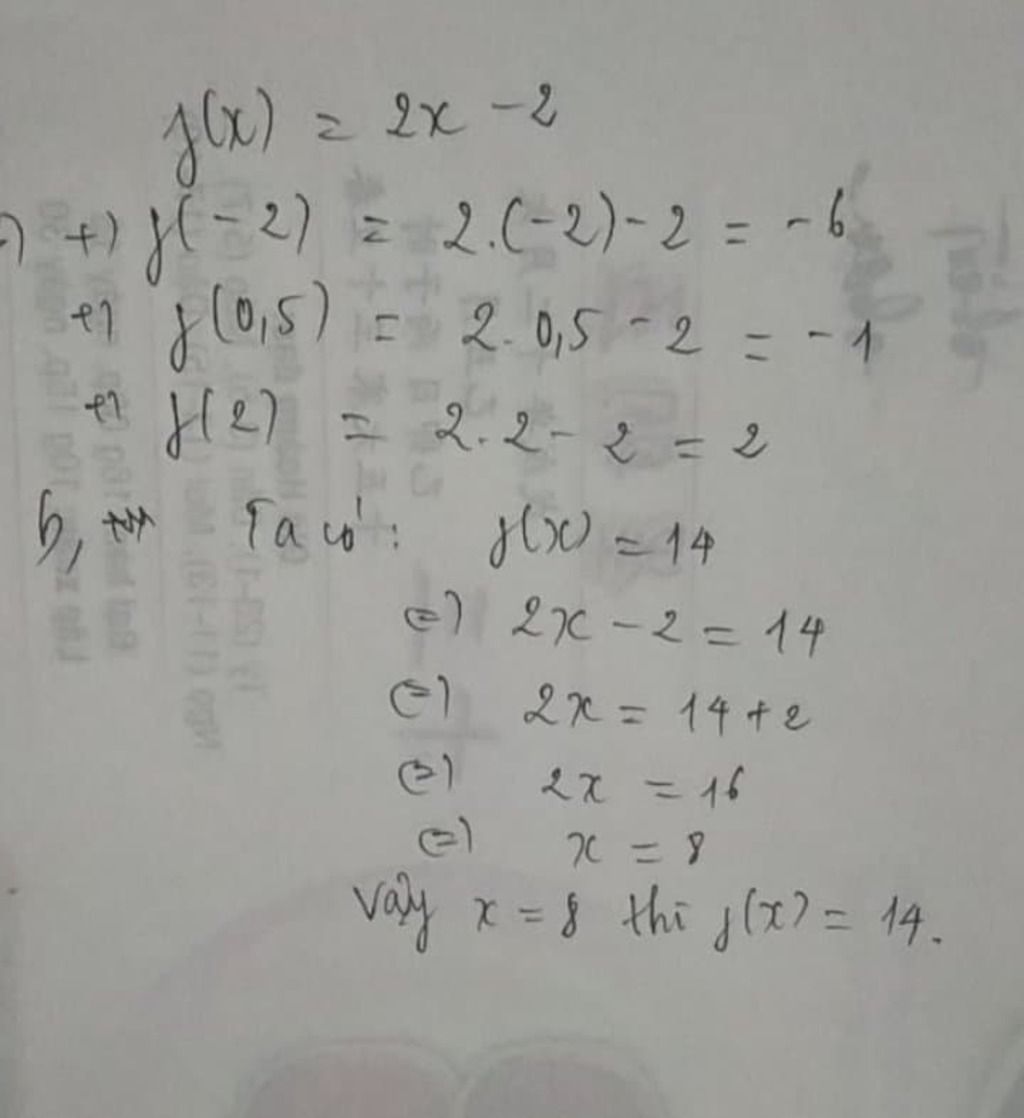 f(x) = 2x - 2
+) f(-2) = 2.(-2) - 2 = -6
+) f(0,5) = 2. 0,5 - 2 = -1
+) f(2) = 2. 2 - 2 = 2
b, Ta có: f(x) = 14
(=) 2x - 2 = 14
(=) 2x = 14 + 2
(=) 2x = 16
(=) x = 8
Vậy x = 8 thì f(x) = 14.